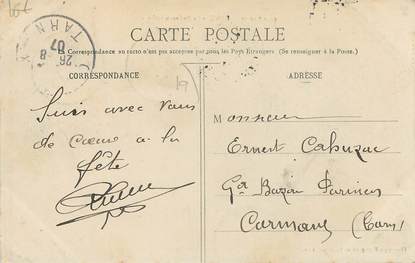 lot
TARN
26 - 8
07
CARTE POSTALE
La Correspondance au recto n'est pas acceptée par tous les Pays Étrangers (Se renseigner à la Poste.)
CORRESPONDANCE
ADRESSE
19
Suis avec vous
de Cœur a la
fête
Monsieur
Ernest Cabuzac
Gd Bazar Parisien
Carmaux (Tarn)